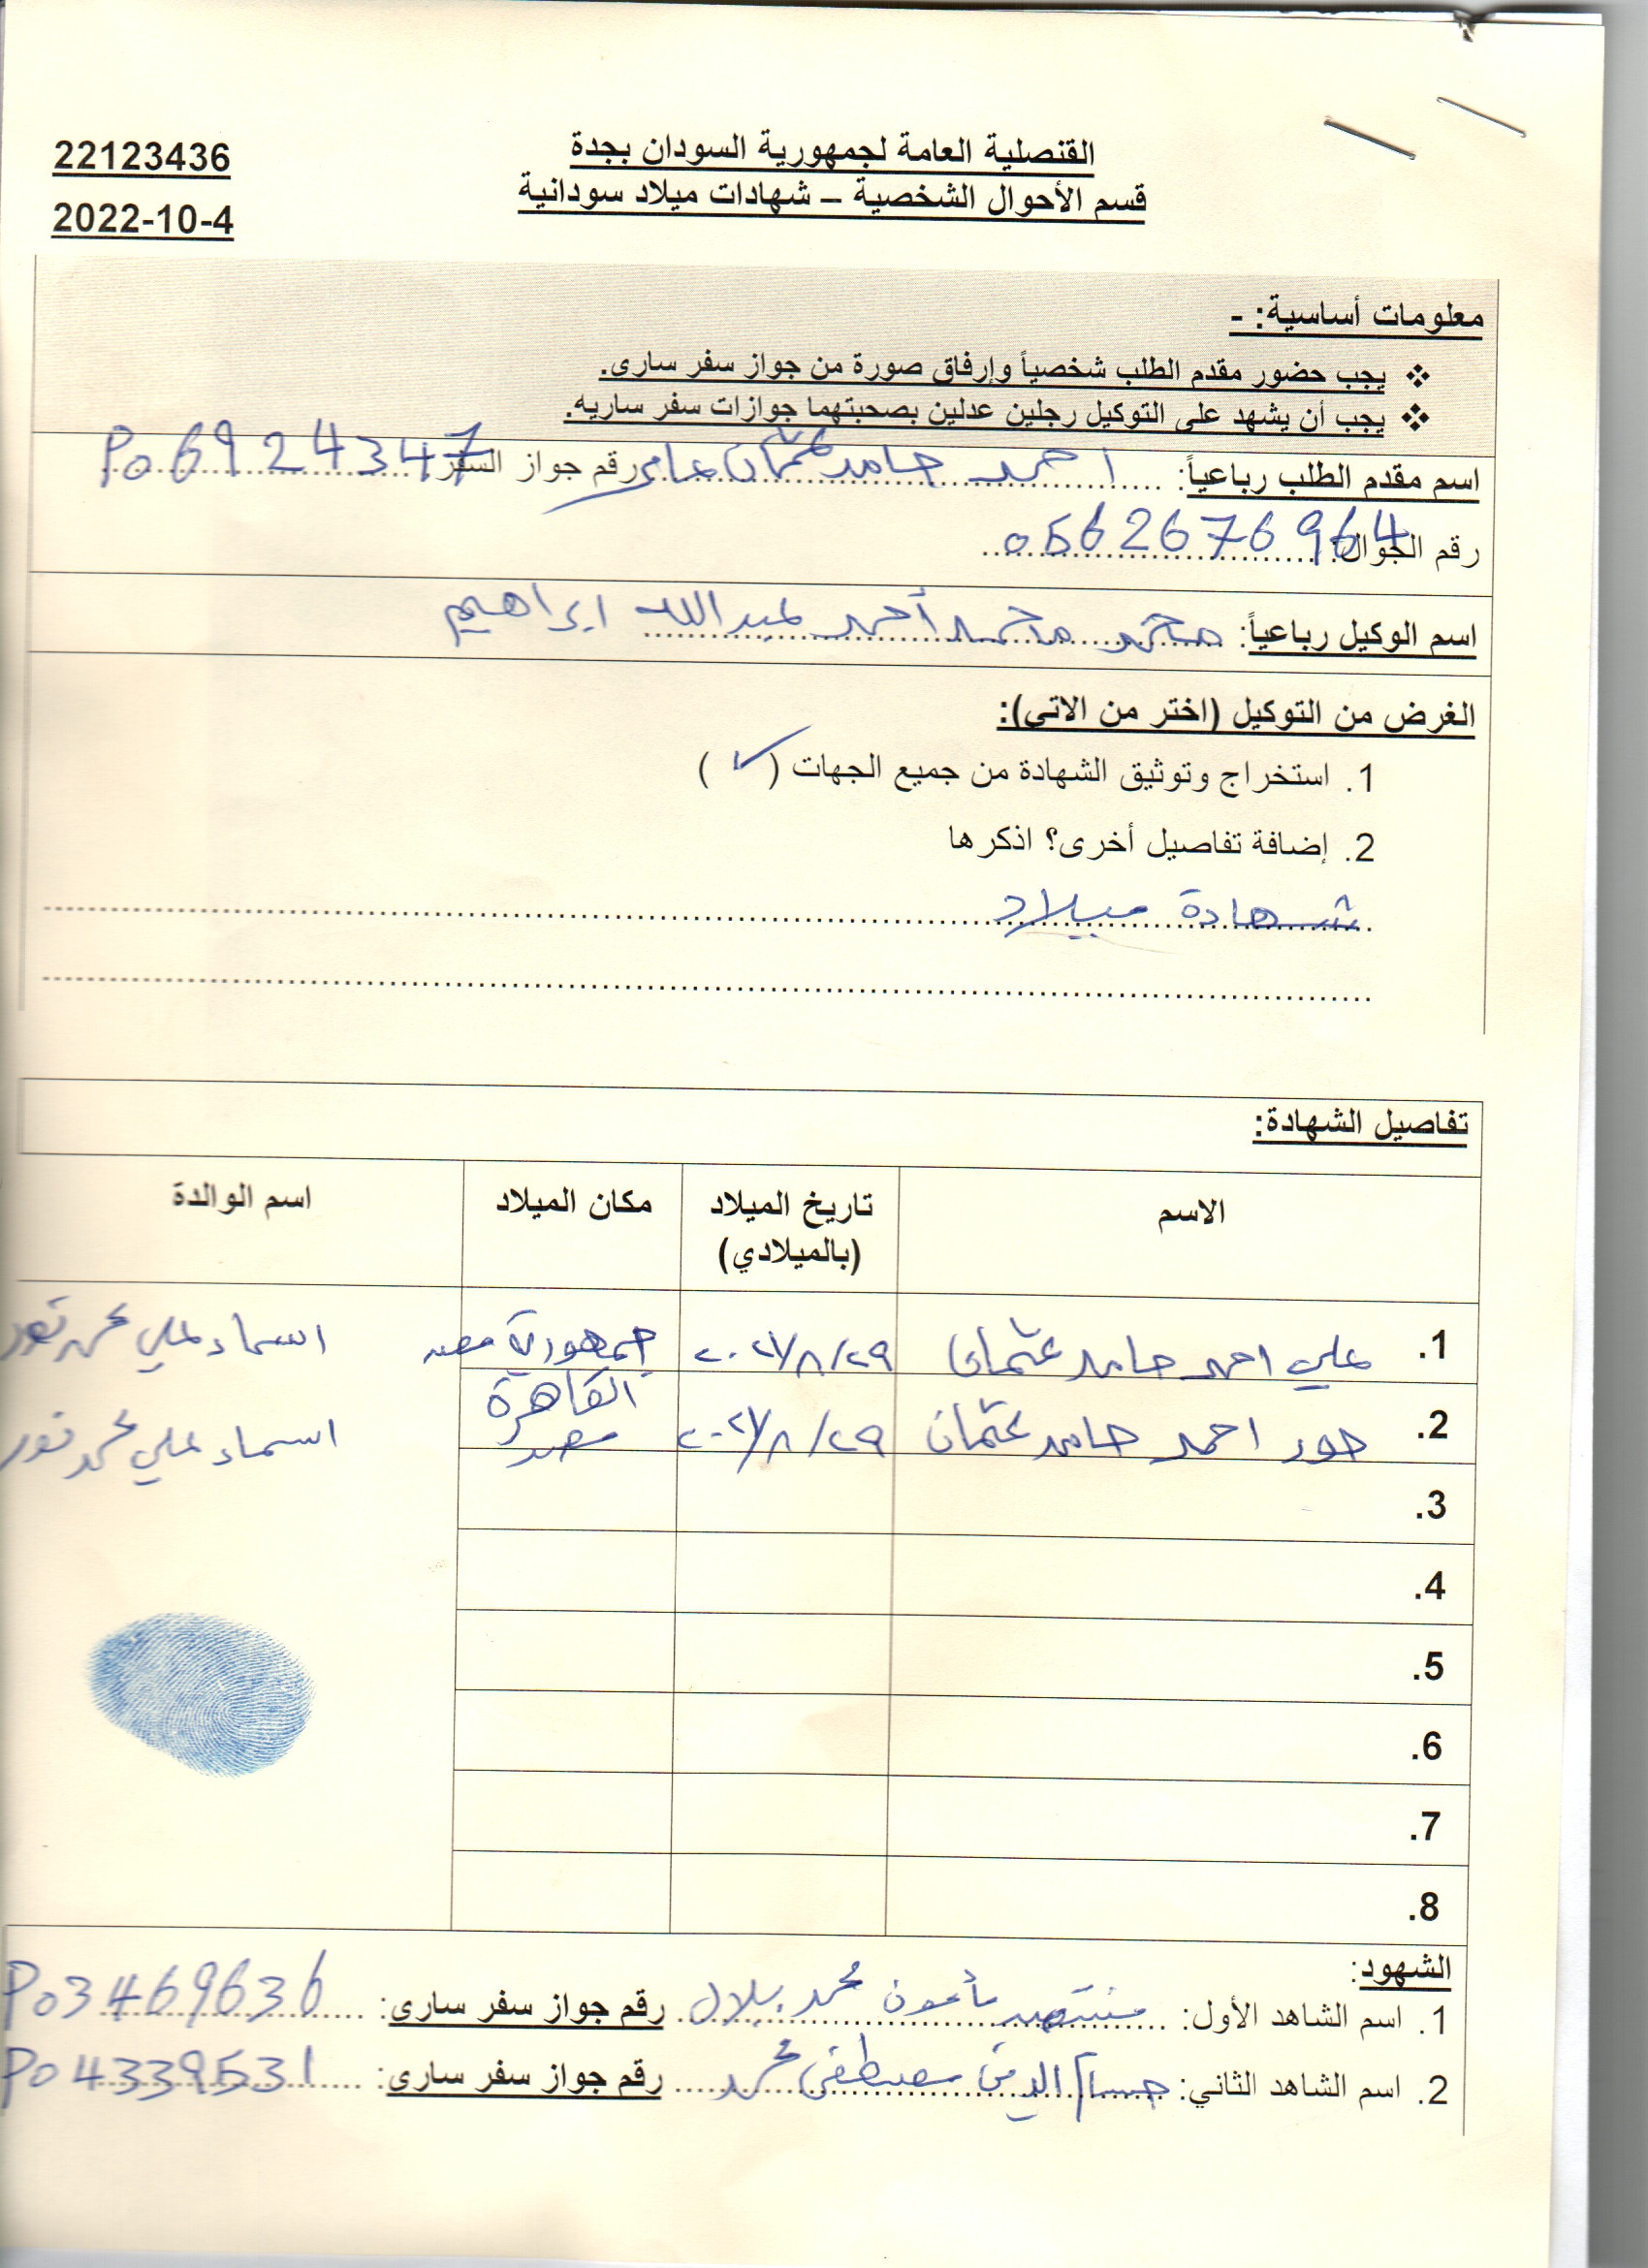 القنصلية العامة لجمهورية السودان بجدة
22123436
قسم الأحوال الشخصية – شهادات ميلاد سودانية
2022-10-4
معلومات أساسية: -
❖ يجب حضور مقدم الطلب شخصياً وإرفاق صورة من جواز سفر سارى.
❖ يجب أن يشهد على التوكيل رجلين عدلين بصحبتهما جوازات سفر ساريه.
اسم مقدم الطلب رباعياً: احمد حامد عثمان علي رقم جواز السفر P06924347
رقم الجوال: 0562676964
اسم الوكيل رباعياً: محمد محمد أحمد عبدالله ابراهيم
الغرض من التوكيل (اختر من الاتى):
1. استخراج وتوثيق الشهادة من جميع الجهات (✓)
2. إضافة تفاصيل أخرى؟ اذكرها
شهادة ميلاد
تفاصيل الشهادة:
الاسم تاريخ الميلاد (بالميلادي) مكان الميلاد اسم الوالدة
1. علي احمد حامد عثمان ٢٩/٨/ جمهورية مصر اسماء علي محمد نور
2. حور احمد حامد عثمان ٢٩/٨/ القاهرة مصر اسماء علي محمد نور
3.
4.
5.
6.
7.
8.
الشهود:
1. اسم الشاهد الأول: منتصر مأمون محمد بلال رقم جواز سفر سارى: P03469636
2. اسم الشاهد الثاني: حسام الدين مصطفى محمد رقم جواز سفر سارى: P04339531